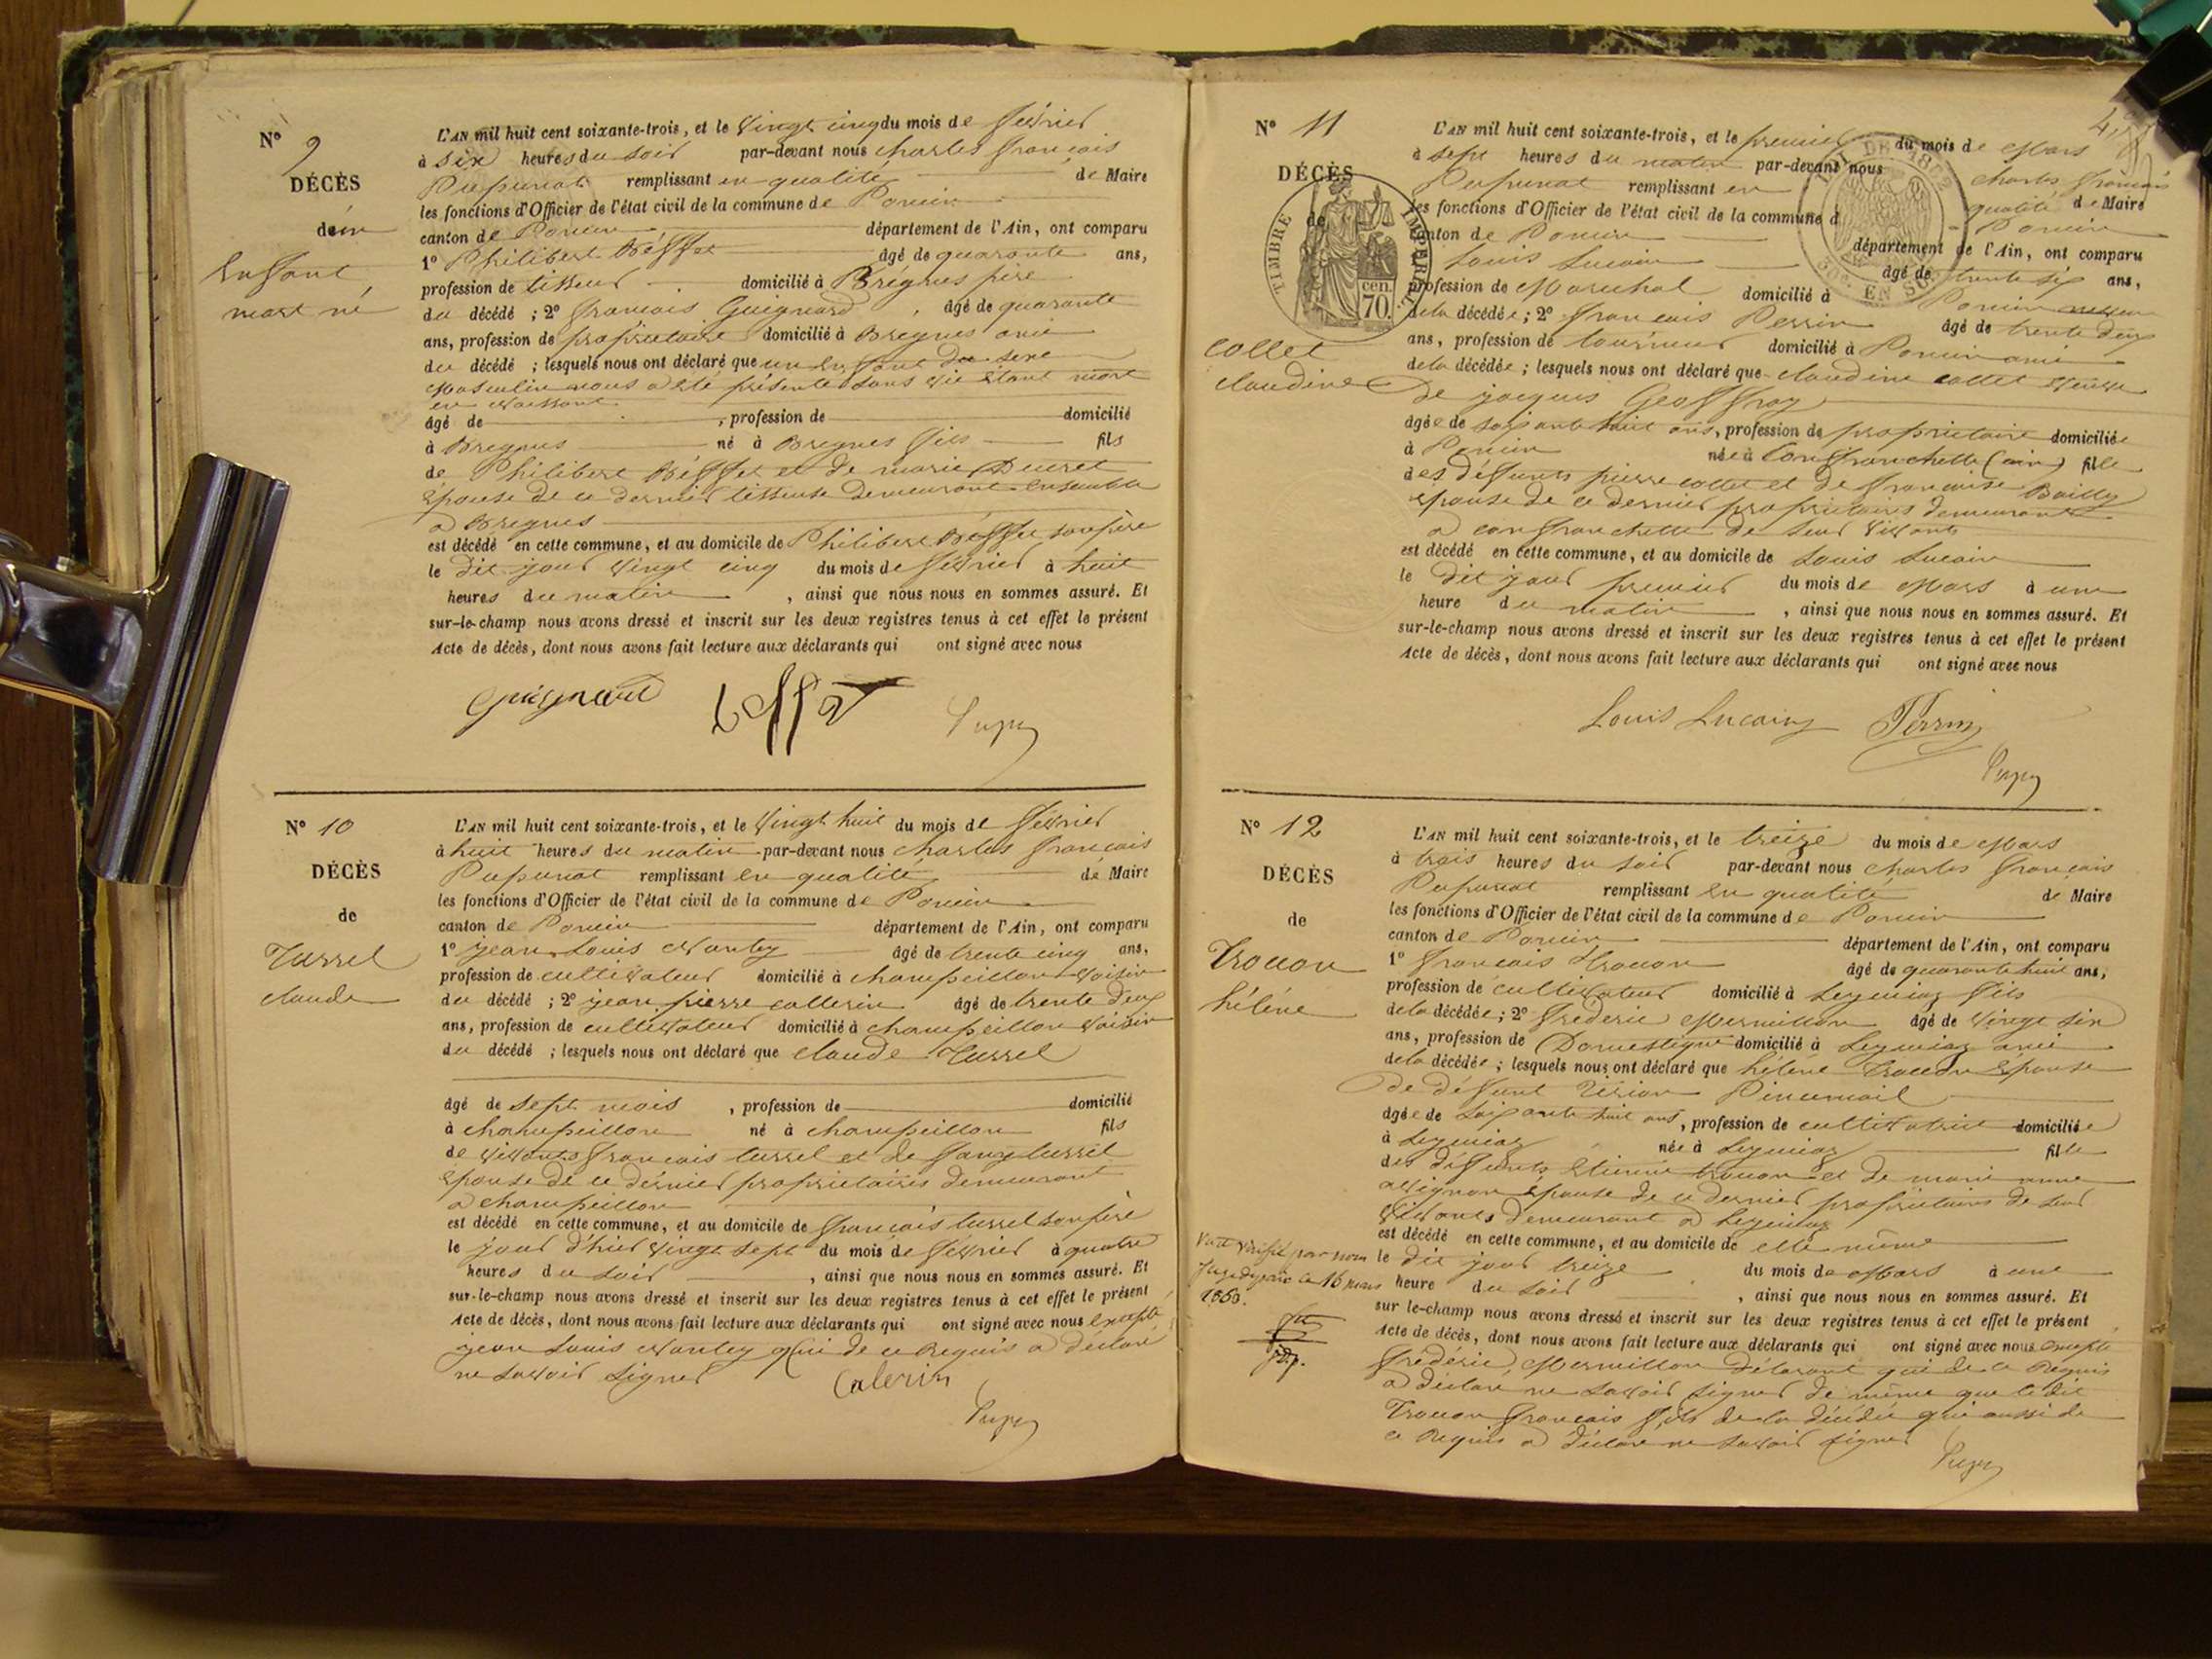 N° 9
DÉCÈS
d'un
Enfant
mort né
L'AN mil huit cent soixante-trois, et le vingt cinq du mois de février
à six heures du soir par-devant nous charles français
Pupunat remplissant en qualité de Maire
les fonctions d'Officier de l'état civil de la commune de Poncin
canton de Poncin département de l'Ain, ont comparu
1° Philibert Béffet âgé de quarante ans,
profession de tisseur domicilié à Brégnes père
du décédé ; 2° français Guignard, âgé de quarante
ans, profession de propriétaire domicilié à Bregnes ami
du décédé ; lesquels nous ont déclaré que un enfant du sexe
Masculin nous a été présenté sans vie étant mort
en naissant
âgé de , profession de domicilié
à Bregnes né à Bregnes fils fils
de Philibert Béffet et de marie Ducret
épouse de ce dernier tisseuse demeurant ensemble
a Bregnes
est décédé en cette commune, et au domicile de Philibert Béffet son père
le dit jour vingt cinq du mois de février à huit
heures du matin , ainsi que nous nous en sommes assuré. Et
sur-le-champ nous avons dressé et inscrit sur les deux registres tenus à cet effet le présent
Acte de décès, dont nous avons fait lecture aux déclarants qui ont signé avec nous
Guignard Beffet
N° 10
DÉCÈS
de
Tussel
claude
L'AN mil huit cent soixante-trois, et le vingt huit du mois de février
à huit heures du matin par-devant nous charles français
Pupunat remplissant en qualité de Maire
les fonctions d'Officier de l'état civil de la commune de Poncin
canton de Poncin département de l'Ain, ont comparu
1° jean Louis âgé de trente cinq ans,
profession de cultivateur domicilié à champeillon voisin
du décédé ; 2° jean pierre callerin âgé de trente deux
ans, profession de cultivateur domicilié à champeillon voisin
du décédé ; lesquels nous ont déclaré que claude Tussel
âgé de sept mois , profession de domicilié
à champeillon né à champeillon fils
de vivants français tussel et de fany tussel
épouse de ce dernier propriétaires demeurant
a champeillon
est décédé en cette commune, et au domicile de français tussel son père
le jour d'hier vingt sept du mois de février à quatre
heures du soir , ainsi que nous nous en sommes assuré. Et
sur-le-champ nous avons dressé et inscrit sur les deux registres tenus à cet effet le présent
Acte de décès, dont nous avons fait lecture aux déclarants qui ont signé avec nous excepté
jean Louis qui de ce Requis a déclaré
ne savoir signer Calerin
N° 11
DÉCÈS
de
Collet
claudine
TIMBRE IMPERIAL
70 cen.
L'AN mil huit cent soixante-trois, et le premier du mois de Mars
à sept heures du matin par-devant nous charles français
Pupunat remplissant en qualité de Maire
les fonctions d'Officier de l'état civil de la commune d Poncin
canton de Poncin département de l'Ain, ont comparu
Louis Lucain âgé de trente six ans,
profession de Marechal domicilié à Poncin
de la décédée ; 2° français Perrin âgé de trente deux
ans, profession de tourneur domicilié à Poncin ami
de la décédée ; lesquels nous ont déclaré que claudine collet veuve
De jacques Geoffray
âgée de soixante huit ans, profession de propriétaire domiciliée
à Poncin née à Confranchette (ain) fille
des défunts pierre collet et de françoise Bailly
épouse de ce dernier propriétaires demeurant
a confranchette de leur vivant
est décédé en cette commune, et au domicile de Louis Lucain
le dit jour premier du mois de Mars à une
heure du matin , ainsi que nous nous en sommes assuré. Et
sur-le-champ nous avons dressé et inscrit sur les deux registres tenus à cet effet le présent
Acte de décès, dont nous avons fait lecture aux déclarants qui ont signé avec nous
Louis Lucain Perrin
N° 12
DÉCÈS
de
Trouon
hélène
L'AN mil huit cent soixante-trois, et le treize du mois de Mars
à trois heures du soir par-devant nous charles français
Pupunat remplissant en qualité de Maire
les fonctions d'Officier de l'état civil de la commune de Poncin
canton de Poncin département de l'Ain, ont comparu
1° français Trouon âgé de quarante huit ans,
profession de cultivateur domicilié à Leymiaz fils
de la décédée ; 2° fréderic Mermillon âgé de vingt six
ans, profession de Domestique domicilié à Leymiaz ami
de la décédée ; lesquels nous ont déclaré que hélène Trouon épouse
De défunt
âgée de soixante huit ans, profession de cultivatrice domiciliée
à Leymiaz née à Leymiaz fille
des défunts étienne trouon et de marie anne
avignon épouse de ce dernier propriétaires de leur
vivants demeurant a Leymiaz
est décédé en cette commune, et au domicile de elle même
le dit jour treize du mois de Mars à une
heure du soir , ainsi que nous nous en sommes assuré. Et
sur le-champ nous avons dressé et inscrit sur les deux registres tenus à cet effet le présent
Acte de décès, dont nous avons fait lecture aux déclarants qui ont signé avec nous excepté
frédéric Mermillon déclarant qui de ce Requis
a déclaré ne savoir signer de même que le dit
Trouon français fils de la décédée qui aussi de
ce Requis a déclaré ne savoir signer
Vu et vérifié par nous
juge de paix le 16 mars
1863.